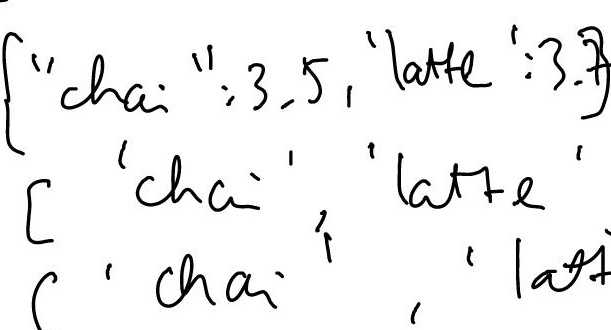 {"chai":3.5,'latte':3.7}
['chai','latte'
('chai','latt